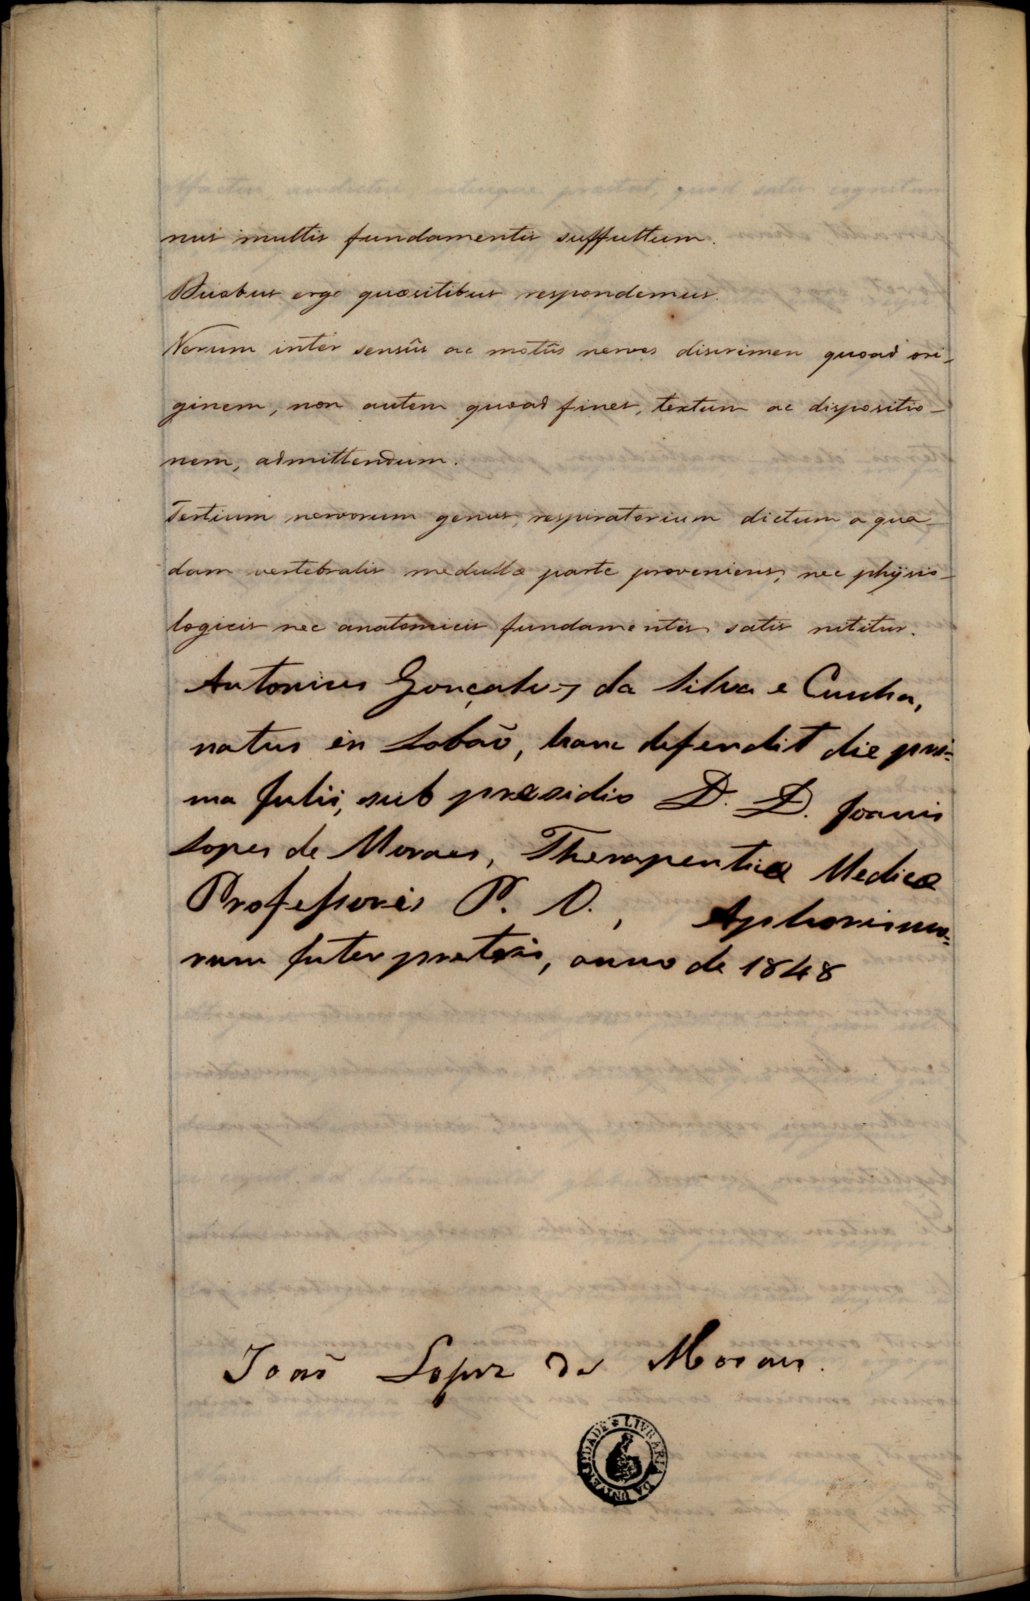 nus multis fundamentis suffultum.
Duabus ergo quæsitibus respondemus.
Verum inter sensûs ac motûs nervos discrimen quoad ori-
ginem, non autem quoad fines, textum ac dispositio-
nem, admittendum.
Tertium nervorum genus, respiratorium dictum a qua-
dam vertebralis medullæ parte proveniens, nec physio-
logicis nec anatomicis fundamentis satis nititur.
Antonius Gonçalves da Silva e Cunha,
natus in Lobaõ, hanc defendit die pri-
ma Julii, sub præsidio D. D. Joannis
Lopes de Moraes, Therapeuticæ Medicæ
Professoris P. O., Aphorismo-
rum Interpretis, anno de 1848
Joaõ Lopes de Moraes.
LIVRARIA DA UNIVERSIDADE